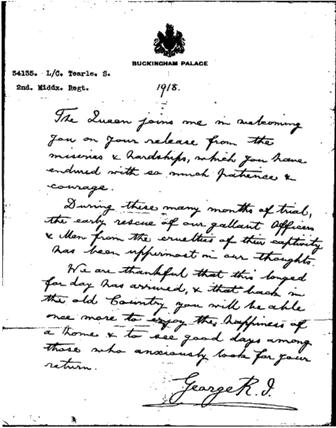 BUCKINGHAM PALACE
34135. L/C. Tearle. S.
2nd. Middx. Regt.
1918.
The Queen joins me in welcoming
you on your release from the
miseries & hardships, which you have
endured with so much patience &
courage.
During these many months of trial,
the early rescue of our gallant Officers
& Men from the cruelties of their captivity
has been uppermost in our thoughts.
We are thankful that this longed
for day has arrived, & that back in
the old Country you will be able
once more to enjoy the happiness of
a home & to see good days among
those who anxiously look for your
return.
George R.I.